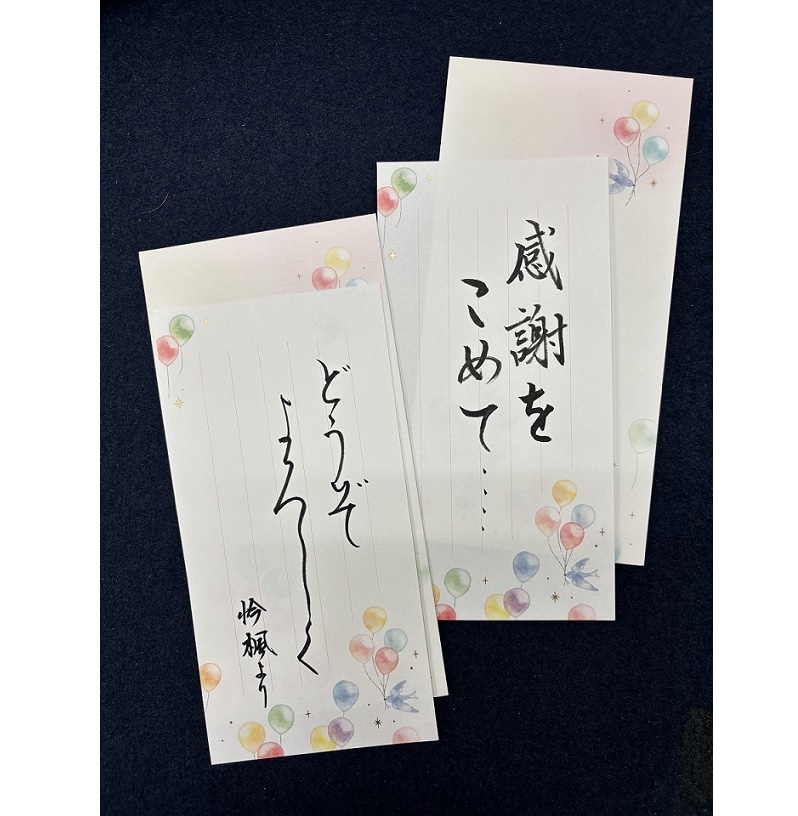 感謝を
こめて・・・・
どうぞ
よろしく
楓より